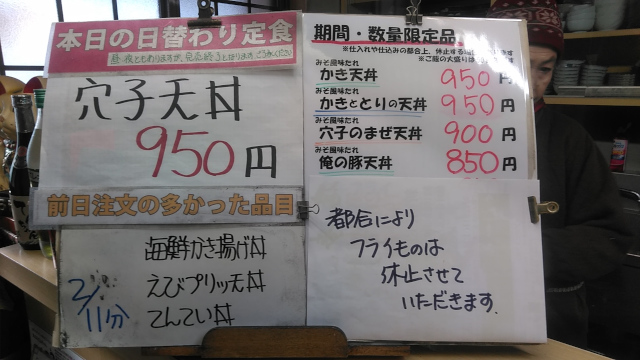 本日の日替わり定食
昼・夜ともありますが、売品終了となりますご了承ください
穴子天丼
950円
前日注文の多かった品目
2/11分
海鮮かき揚げ丼
えびプリッ天丼
てんてい丼
期間・数量限定品
※仕入れや仕込みの都合上、休止する場合
※ご飯の大盛りは
みそ風味たれ
かき天丼 950円
みそ風味たれ
かきととりの天丼 950円
みそ風味たれ
穴子のまぜ天丼 900円
みそ風味たれ
俺の豚天丼 850円
都合により
フライものは
休止させて
いただきます.